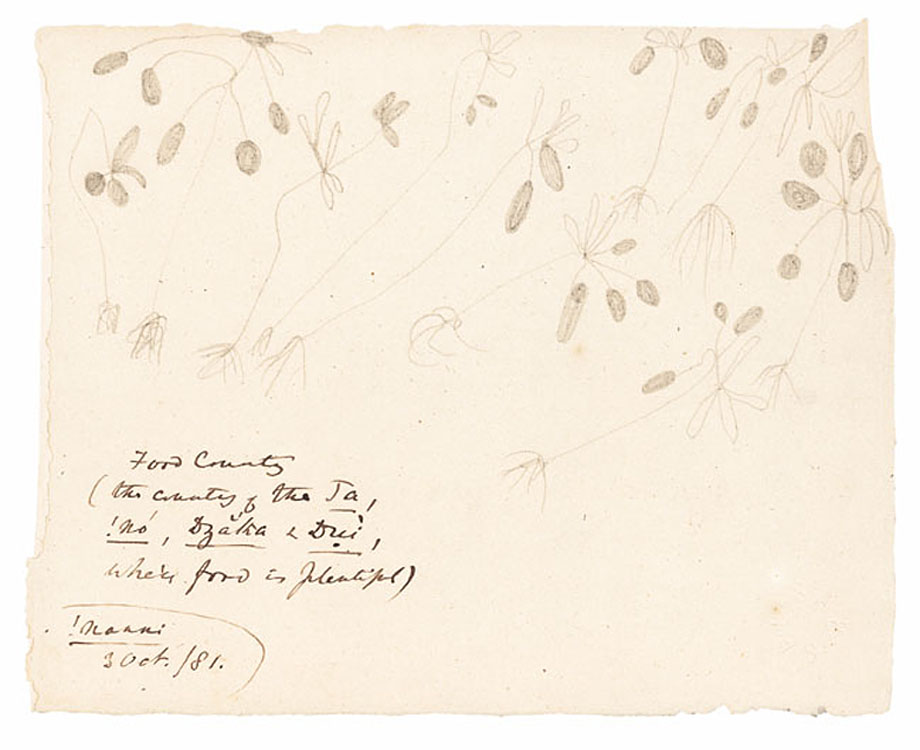 Food Country
(the country of the Ta,
!nó, Dzăka & Dui,
where food is plentiful)
!nanni
3 Oct. /81.